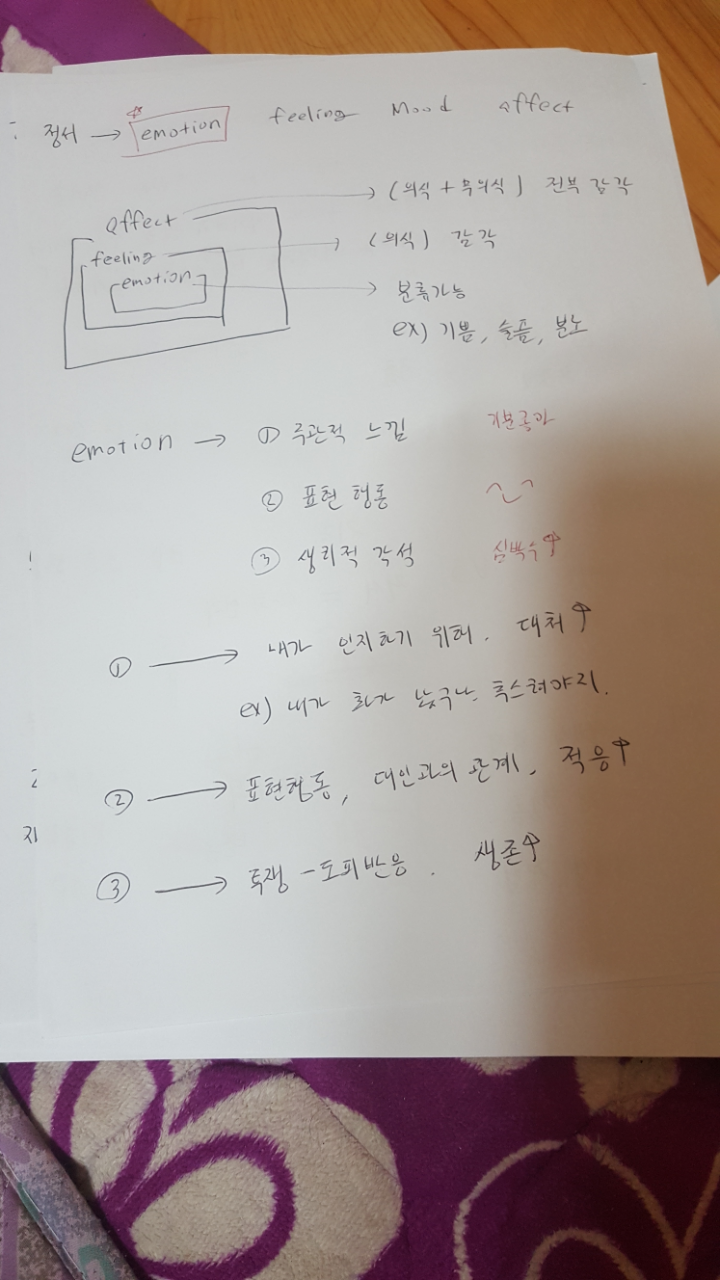 정서 → emotion feeling Mood affect
affect → (의식 + 무의식) 전부 감각
feeling → (의식) 감각
emotion → 분류가능
ex) 기쁨, 슬픔, 분노
emotion → ① 주관적 느낌
② 표현 행동 ^_^
③ 생리적 각석 심박수↑
① → 내가 인지하기 위해. 대처↑
ex) 내가 화가 났구나.
② → 표현행동, 대인과의 관계. 적응↑
③ → 투쟁-도피반응. 생존↑